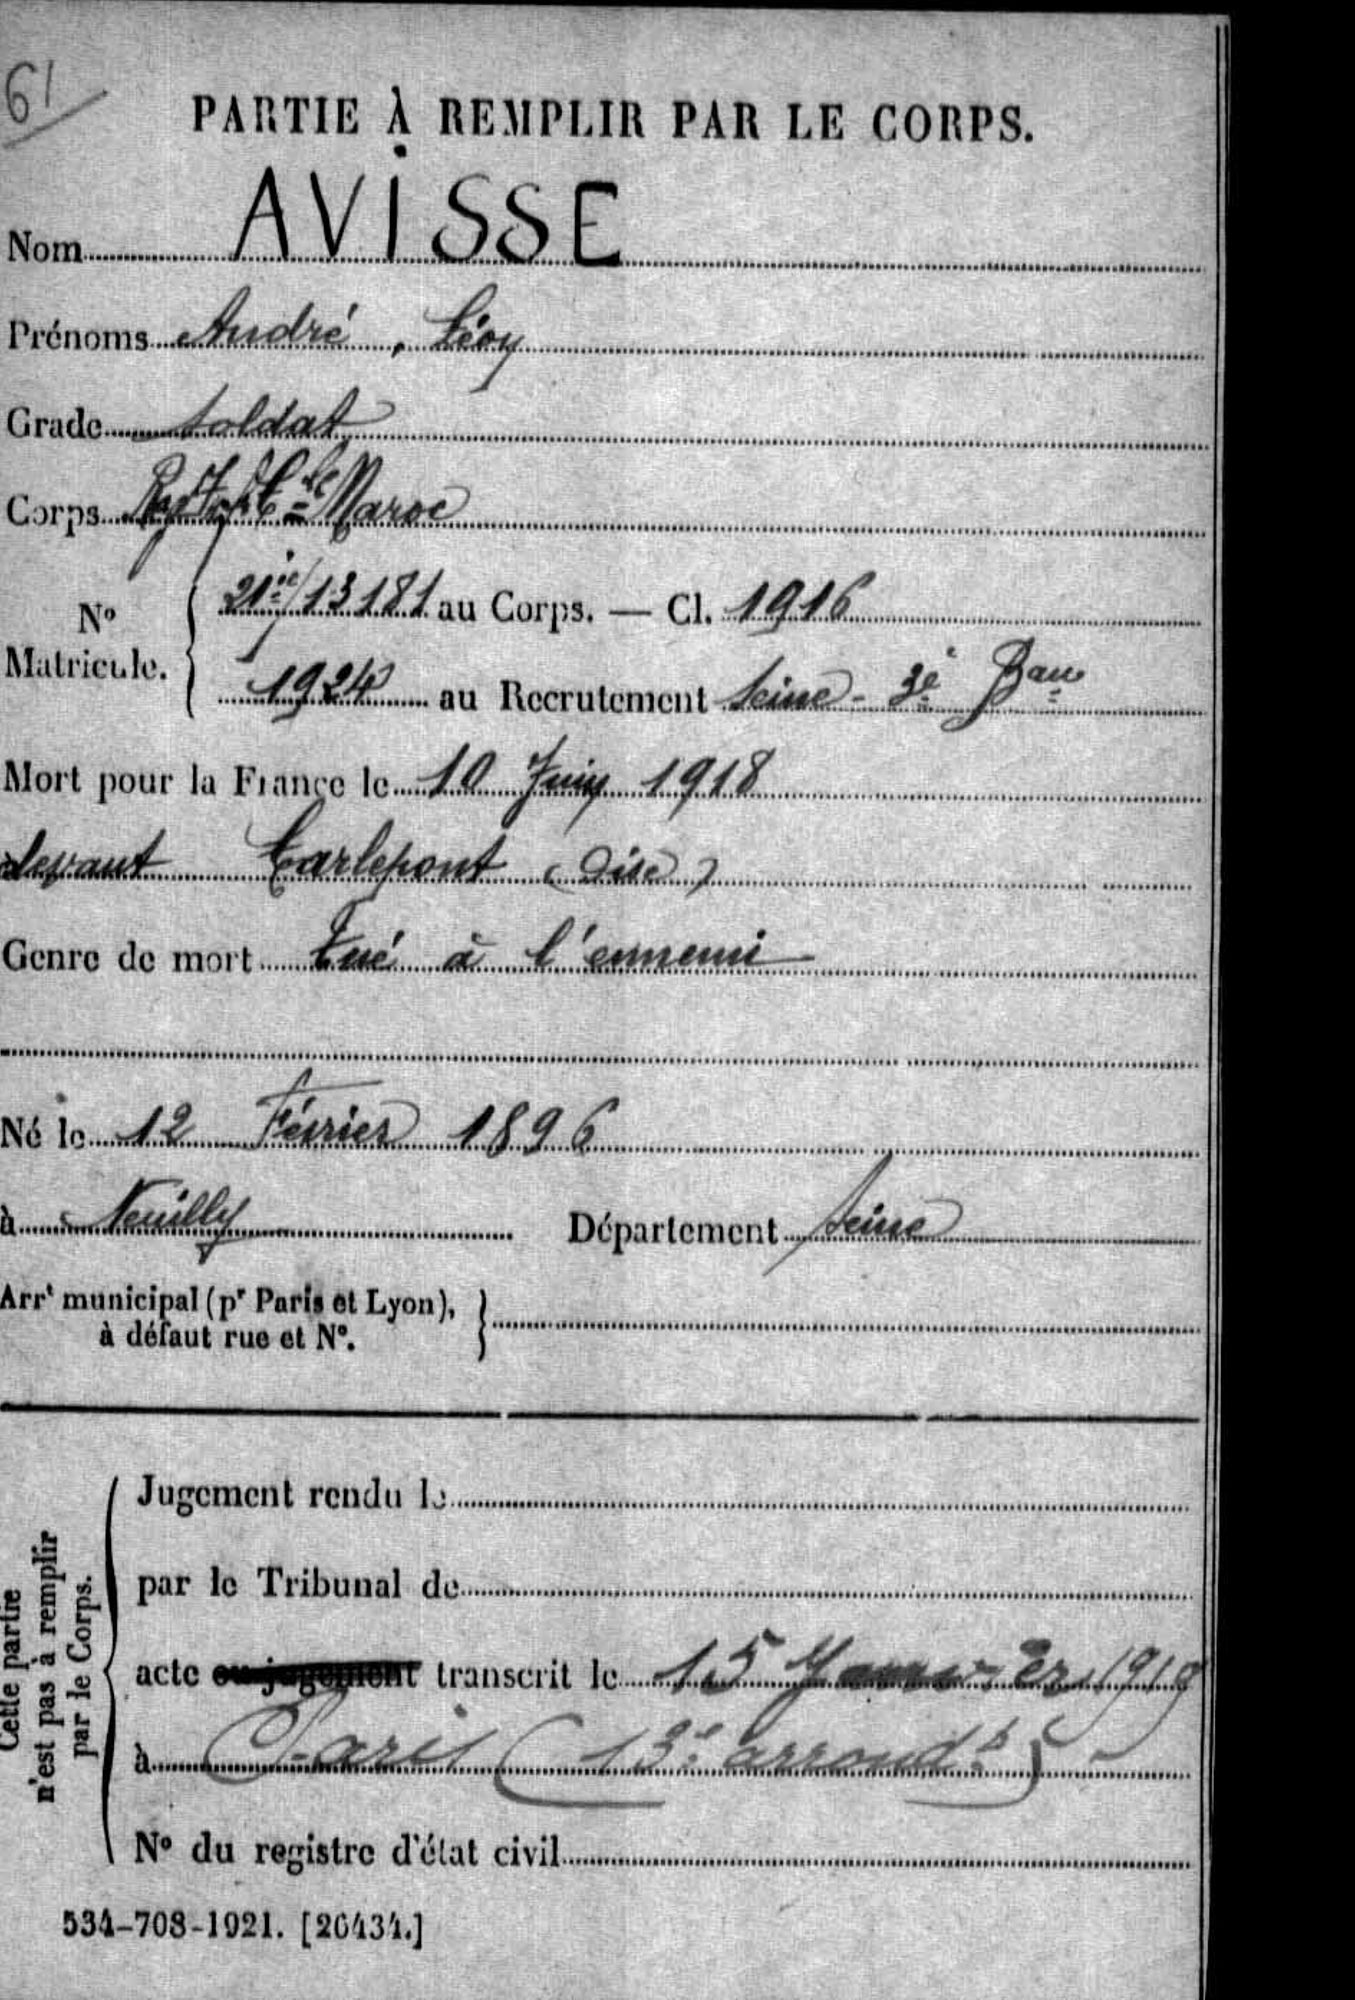 61
PARTIE À REMPLIR PAR LE CORPS.
Nom AVISSE
Prénoms André, Léon
Grade Soldat
Corps Regt d'Inf. Cle Maroc
N° Matricule. { 21ie/13181 au Corps. — Cl. 1916
1924 au Recrutement Seine - 3e Bau
Mort pour la France le 10 Juin 1918
devant Carlepont (Oise)
Genre de mort tué à l'ennemi
Né le 12 Février 1896
à Neuilly Département Seine
Arrt municipal (pr Paris et Lyon),
à défaut rue et N°.
Cette partie
n'est pas à remplir
par le Corps.
Jugement rendu le
par le Tribunal de
acte ou jugement transcrit le 15 Janvier 1919
à Paris (13e arrondt)
N° du registre d'état civil
534-708-1921. [26434.]